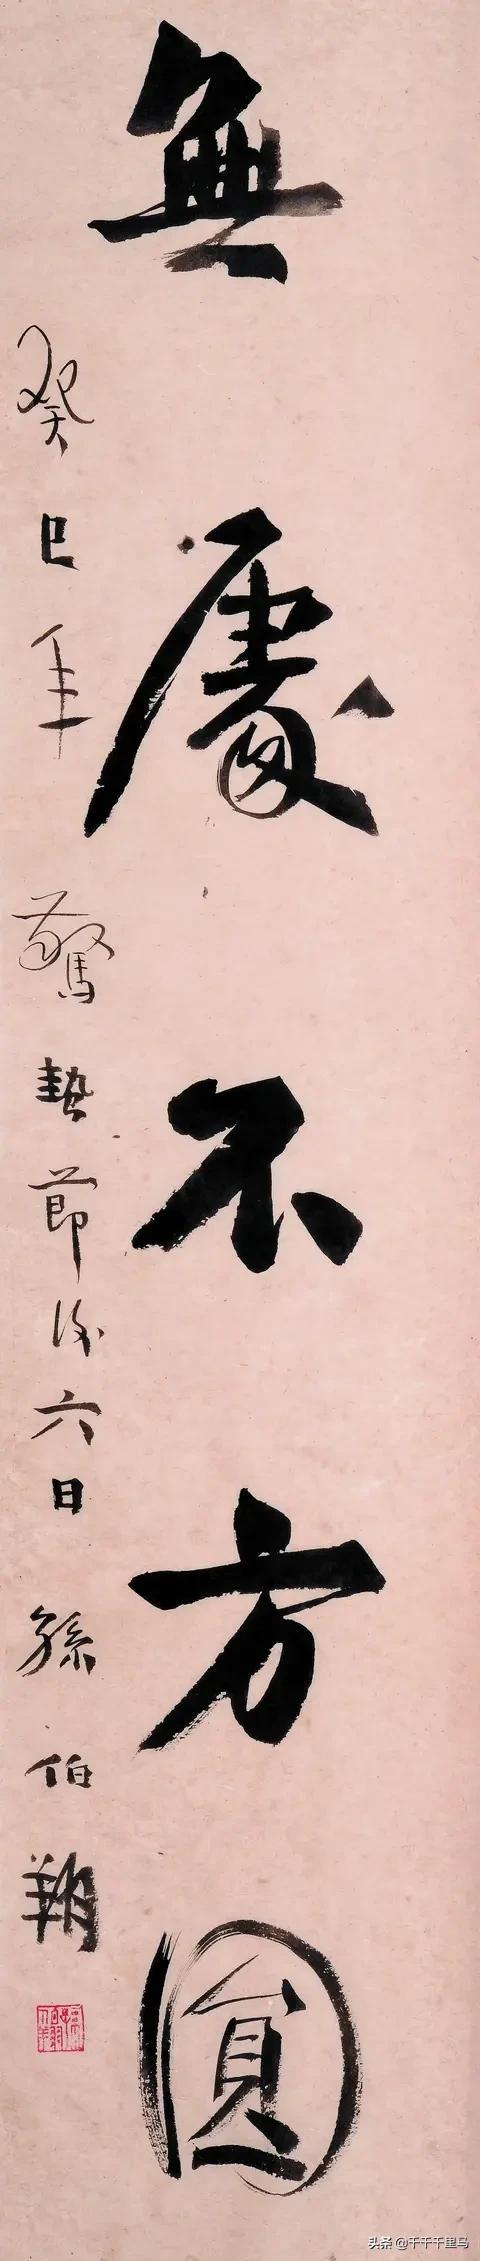 無處不方圓
癸巳年驚蟄節後六日孫伯翔
头条 @千千千里马